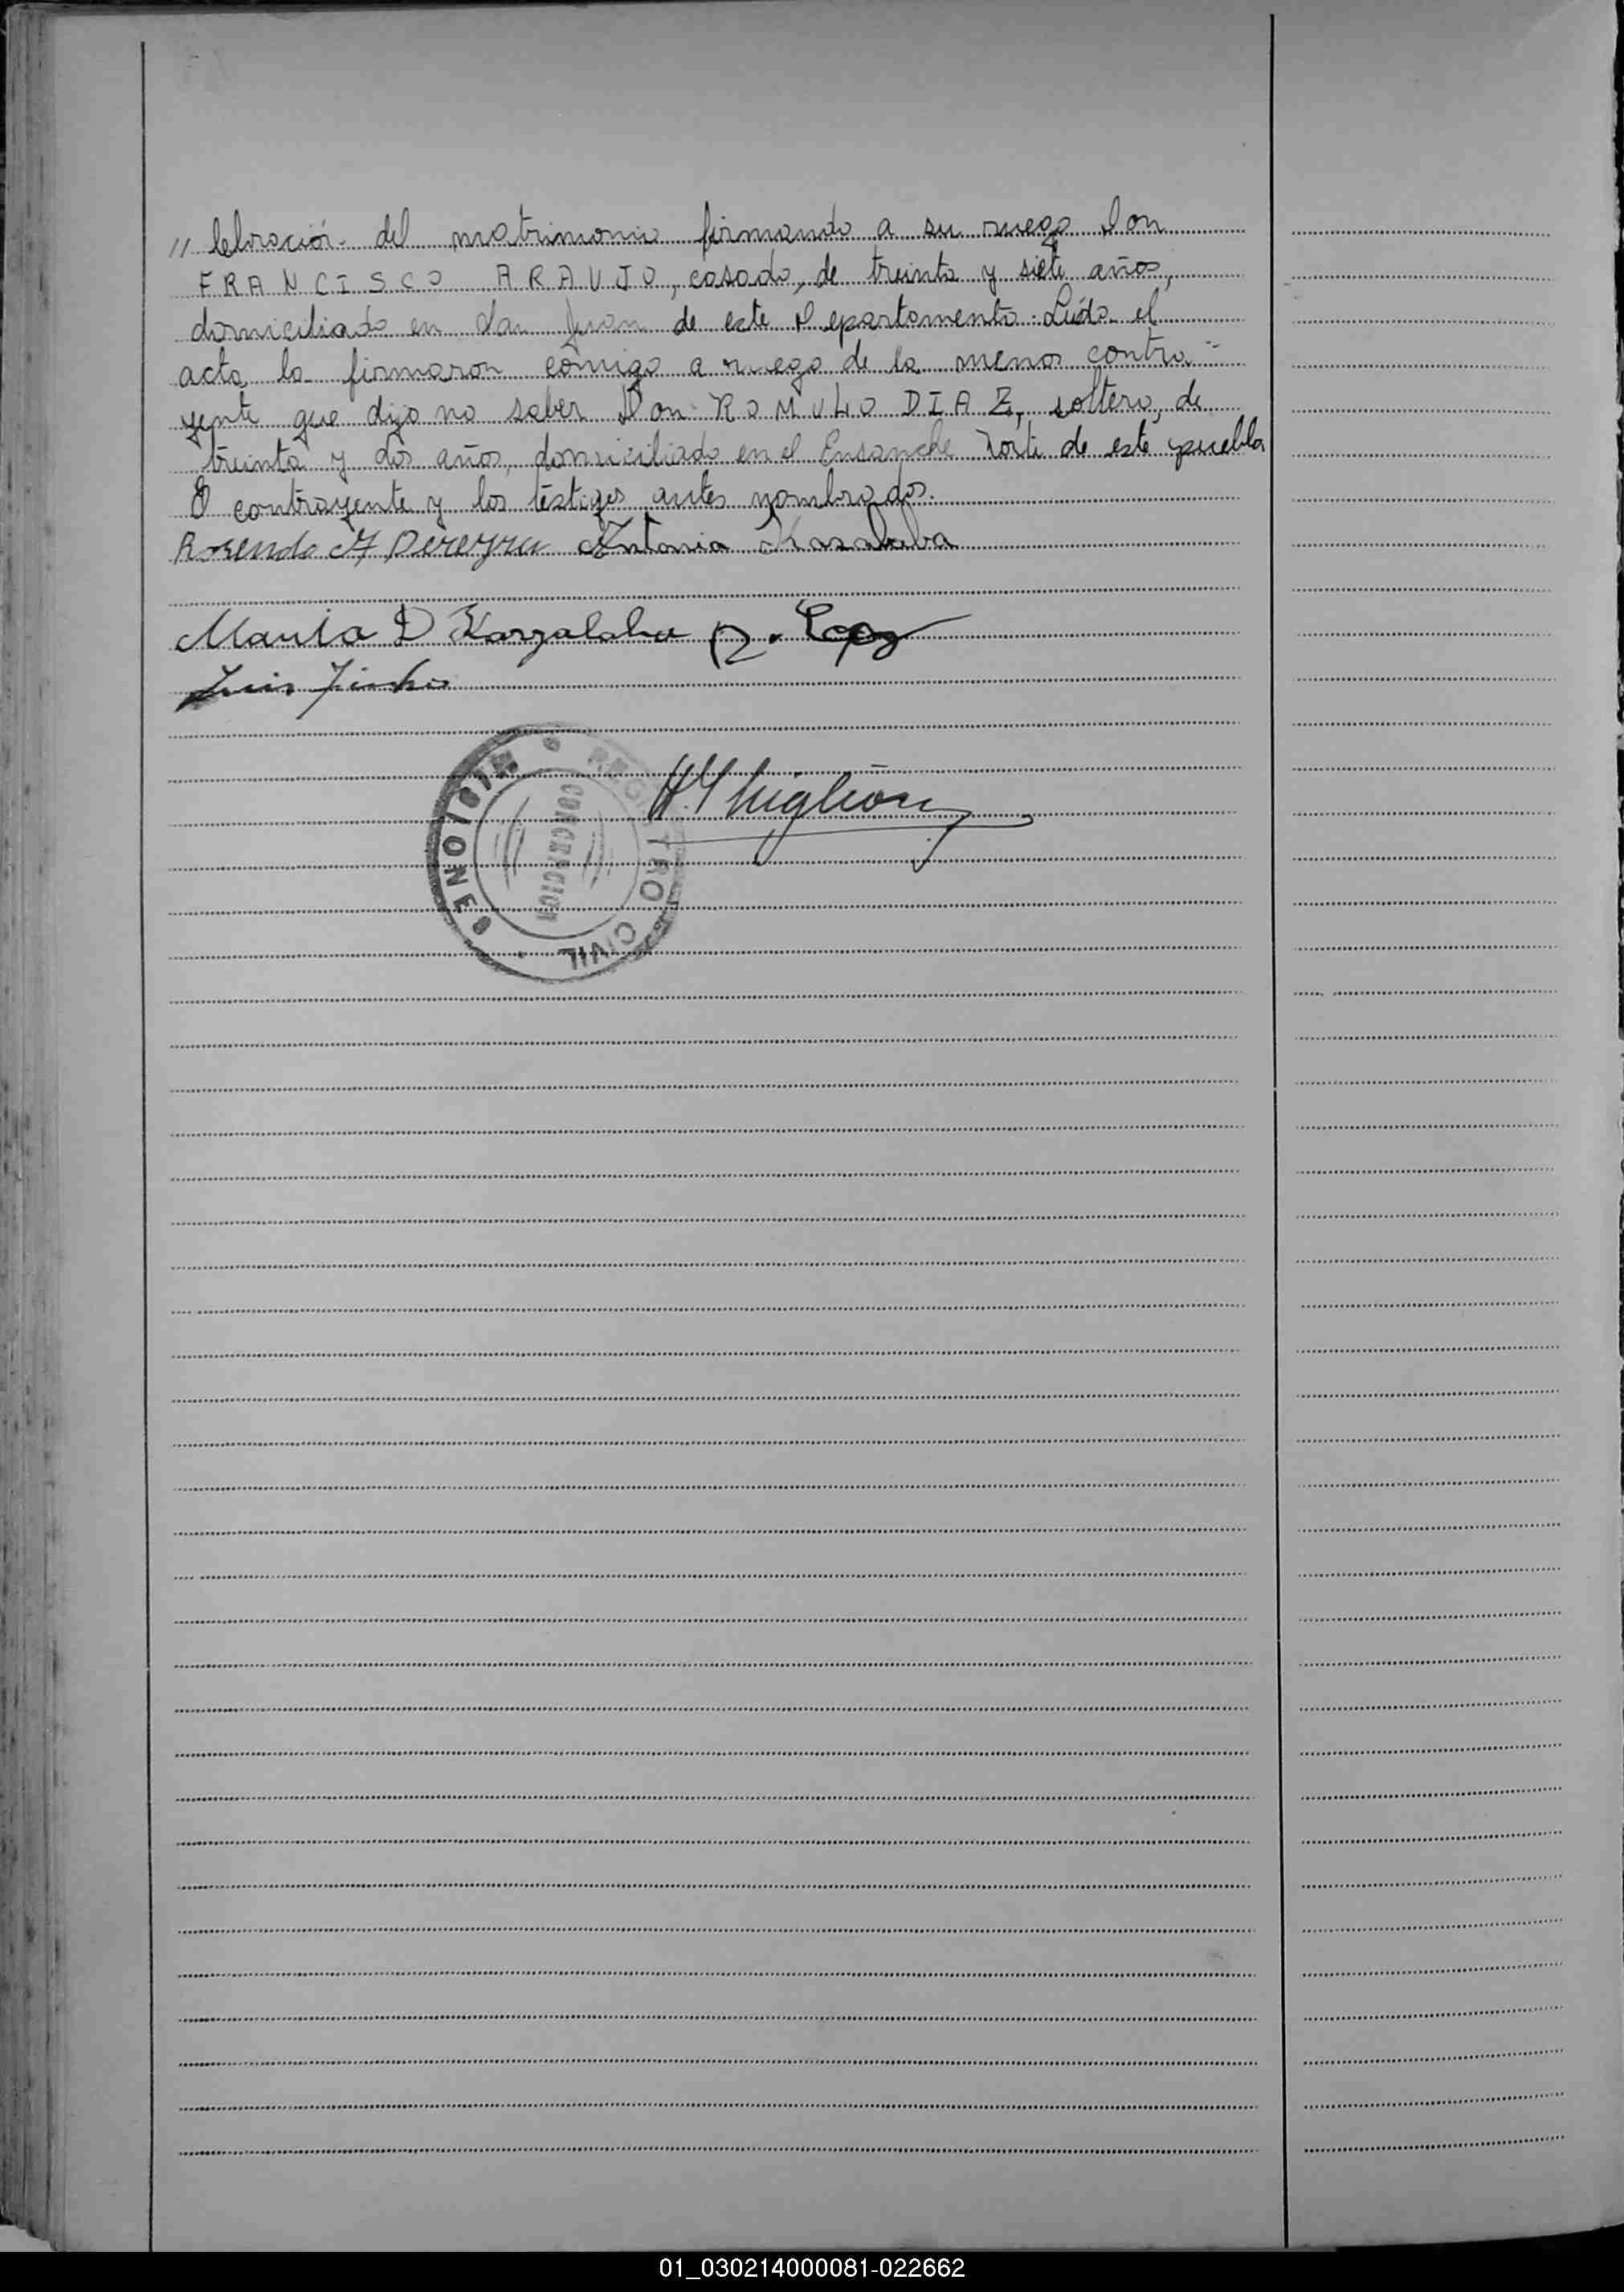 // lebración del matrimonio firmando a su ruego Don
FRANCISCO ARAUJO, casado, de treinta y siete años,
domiciliado en San Juan de este Departamento. Leída el
acta la firmaron cômigo a ruego de la menor contra-
yente que dijo no saber Don ROMULO DIAZ, soltero, de
treinta y dos años, domiciliado en el Ensanche Norte de este pueblo
El contrayente y los testigos antes nombrados.
Rosendo Pereyra Antonia
Maria D R. Lopez
Luis
REGISTRO CIVIL
CONCEPCION
01_030214000081-022662